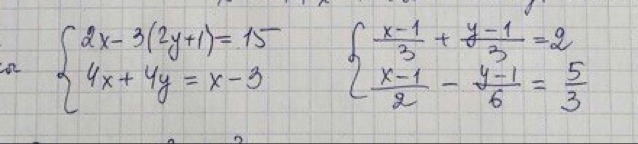 2x - 3(2y+1) = 15
4x + 4y = x - 3
(x-1)/3 + (y-1)/3 = 2
(x-1)/2 - (y-1)/6 = 5/3